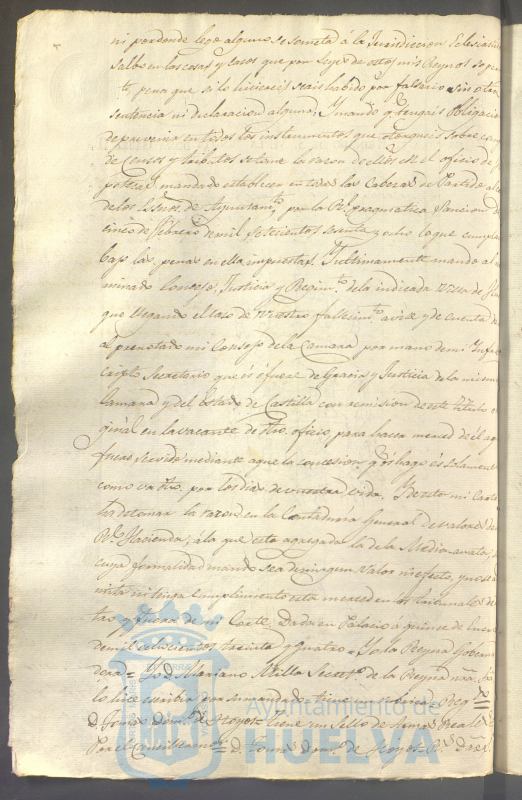 ni por donde lego alguno se someta á la Jurisdiccion Eclesiastica
salbo en las cosas y casos que por leyes de estos mis Reynos se per-
te, pena que si lo hiciereis seais habido por falsario sin otra
sentencia ni declaracion alguna; Y mando qe. tengais obligacion
de prevenir en todos los instrumentos que otorgueis sobre
de censos y tributos se tome la razon de ellos en el oficio de
potecas mandado establecer en todas las Cabezas de Partido al
de los Essnos. de Ayuntamto. por la Rl. pragmatica sancion de
cinco de Febrero de mil setecientos sesenta y ocho lo que cumplais
bajo las penas en ella impuestas. Y ultimamente mando al
minado Concejo, Justicia y Regimto. de la indicada Villa de
que llegando el caso de vuestro fallecimto. avise y de cuenta de
al prenotado mi Consejo de la Camara por mano de mi Infra-
cripto Secretario que es ó fuere de Gracia y Justicia de la misma
Camara y del estado de Castilla con remision de este titulo ori-
ginal en la vacante de dho. oficio para hacer merced de él aqn.
fuere servido mediante aque la concesion qe. os hago és solamente
como va dho. por los dias de vuestra vida. Y de esta mi Carta
ha de tomar la razon en la Contaduria General de Valores de
Rl. Hacienda, ála que esta agregada la de la Media-annata
cuya formalidad mando sea de ningun valor ni efecto, y no se
mita ni tenga cumplimiento esta merced en los tribunales den-
tro y fuera de mi Corte. Dada en Palacio á quince de Enero
de mil ochocientos treinta y quatro = Yo la Reyna Goberna-
dora = Yo D. Mariano Milla Secreto. de la Reyna nra. Sra.
lo hice escribir por su mandado = tiene una rubrica = Reg
D. Tomas Domo. de Hoyos = tiene un sello de Armas Reales
Por el Canciller mor. = D. Tomas Domo. de Hoyos =
Ayuntamiento de
HUELVA